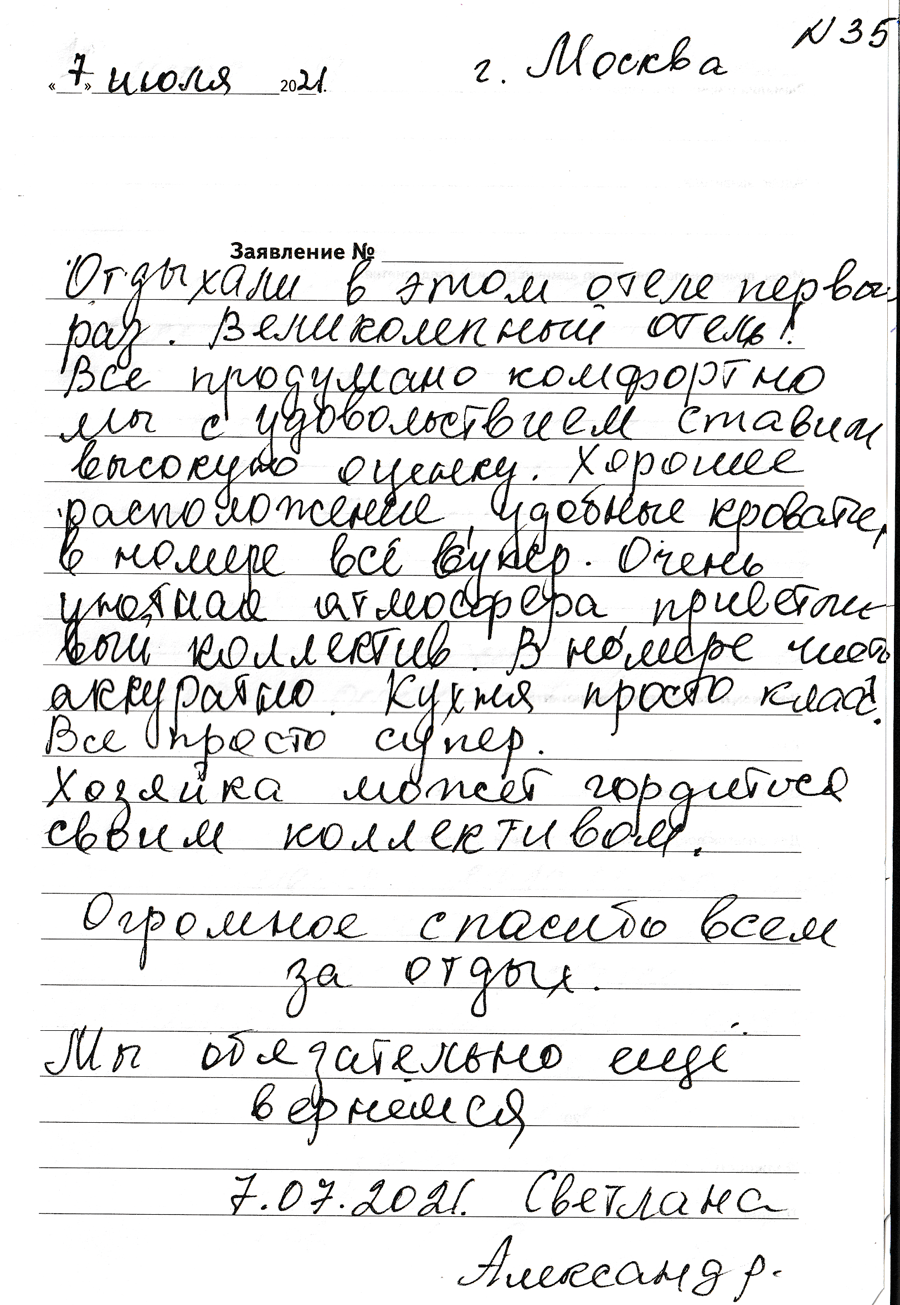 N 35
«7» июля 2021. г. Москва
Заявление №
Отдыхали в этом отеле первы
раз. Великолепный отель!
Все продумано комфортно
мы с удовольствием ставим
высокую оценку. Хорошее
расположение, удобные кровати,
в номере всё супер. Очень
уютная атмосфера, приветли-
вый коллектив. В номере чисто
аккуратно. Кухня просто класс.
Все просто супер.
Хозяйка может гордиться
своим коллективом.
Огромное спасибо всем
за отдых.
Мы обязательно ещё
вернёмся
7.07.2021. Светлана
Александр.